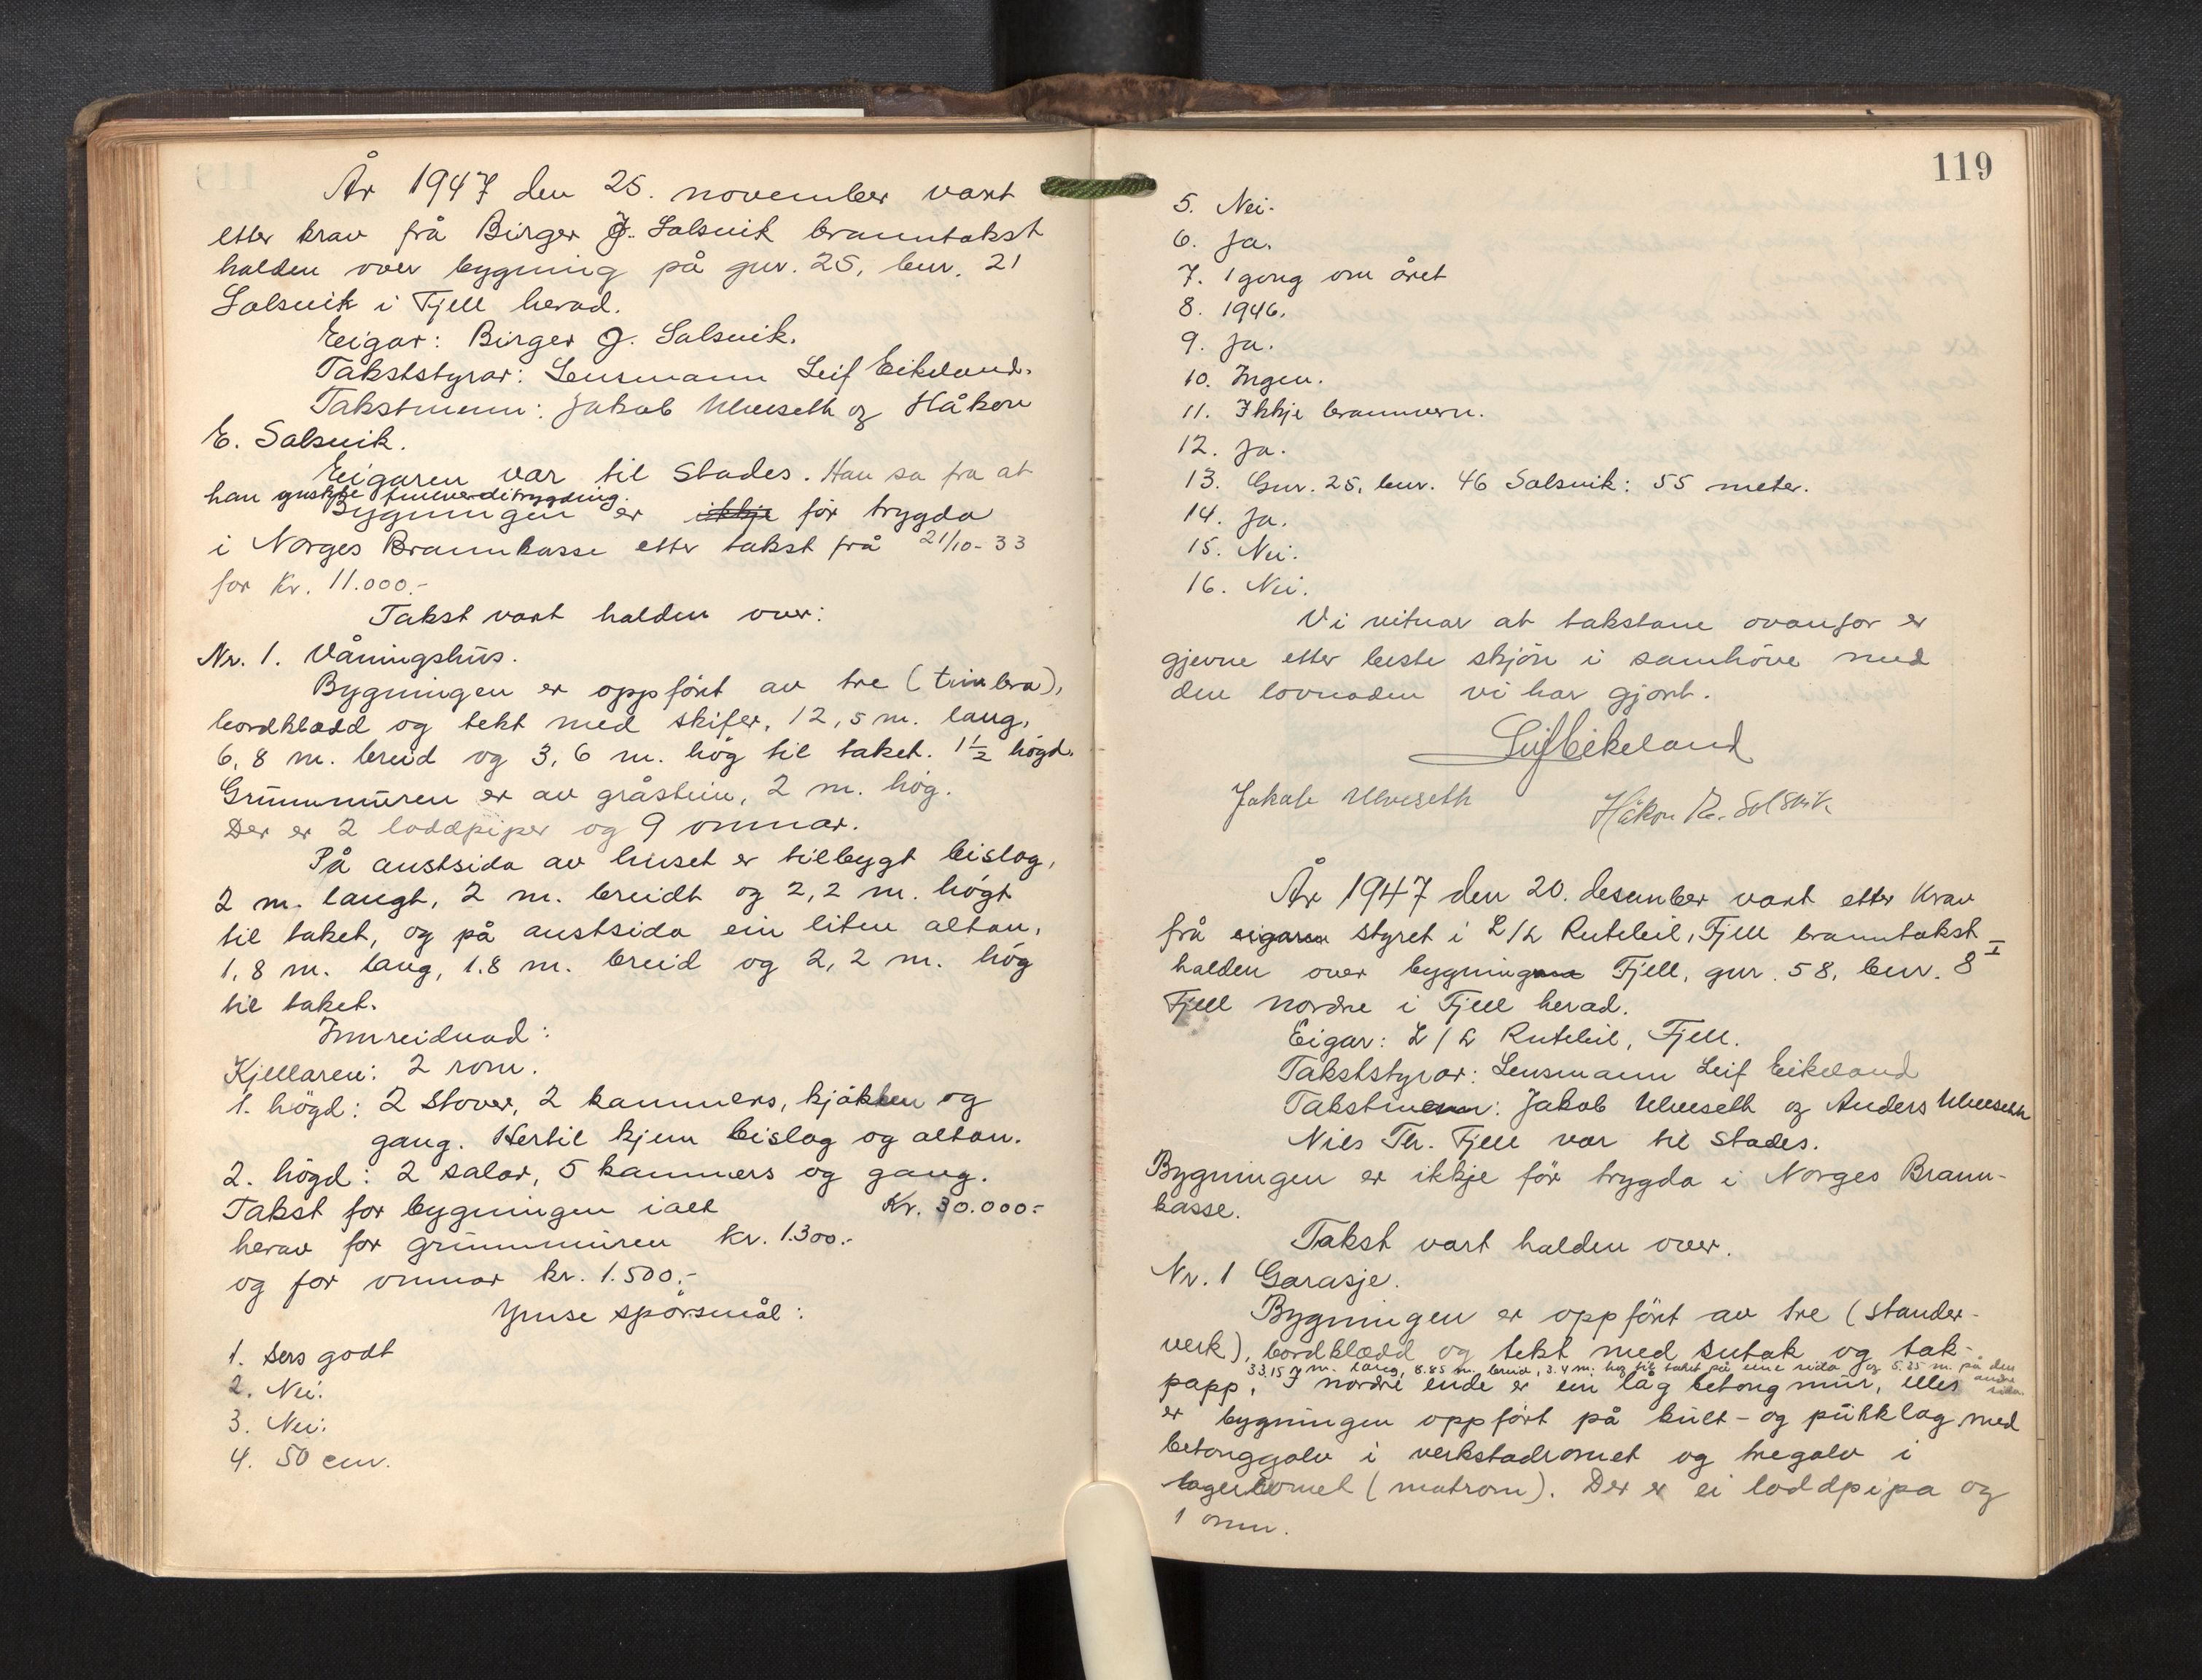 År 1947 den 25. november vart
etter krav frå Birger J. Solsvik branntakst
halden over bygning på gnr. 25, bnr. 21
Solsvik i Fjell herad.
Eigar: Birger J. Solsvik.
Takststyrar: Lensmann Leif Eikeland.
Takstmenn: Jakob Ulveseth og Håkon
E. Solsvik.
Eigaren var til stades. Han sa fra at
han ynskte fullverditrygding.
Bygningen er ikkje för trygda
i Norges Brannkasse etter takst frå 21/10-33
for kr. 11.000.-
Takst vart halden over:
Nr. 1. Våningshus.
Bygningen er oppfört av tre (timbra),
bordkledd og tekt med skifer, 12,5 m. lang,
6,8 m. breid og 3,6 m. hög til taket. 1½ högd.
Grunnmuren er av gråstein, 2 m. hög.
Der er 2 loddpiper og 9 omnar.
På austsida av huset er tilbygt bislag,
2 m. langt, 2 m. breidt og 2,2 m. högt
til taket, og på austsida ein liten altan,
1,8 m. lang, 1.8 m. breid og 2,2 m. hög
til taket.
Innreidnad:
Kjellaren: 2 rom.
1. högd: 2 stover, 2 kammers, kjökken og
gang. Hertil kjem bislag og altan.
2. högd: 2 salar, 5 kammers og gang.
Takst for bygningen ialt Kr. 30.000:-
herav for grunnmuren kr. 1.300.-
og for omnar kr. 1.500.-
Ymse spörsmål:
1. Sers godt
2. Nei.
3. Nei.
4. 50 cm.
119
5. Nei.
6. Ja.
7. 1 gong om året
8. 1946.
9. Ja.
10. Ingen.
11. Ikkje brannvern.
12. Ja.
13. Gnr. 25, bnr. 46 Solsvik: 55 meter.
14. Ja.
15. Nei.
16. Nei.
Vi vitnar at takstane ovanfor er
gjevne etter beste skjön i samhöve med
den lovnaden vi har gjort.
Leif Eikeland
Jakob Ulveseth Håkon E. Solsvik
År 1947 den 20. desember vart etter krav
frå eigaren styret i L/L Rutebil, Fjell branntakst
halden over bygningane Fjell, gnr. 58, bnr. 8 I
Fjell nordre i Fjell herad.
Eigar: L/L Rutebil, Fjell.
Takststyrar: Lensmann Leif Eikeland
Takstmenn: Jakob Ulveseth og Anders Ulveseth
Nils Th. Fjell var til stades.
Bygningen er ikkje för trygda i Norges Brann-
kasse.
Takst vart halden over.
Nr. 1 Garasje.
Bygningen er oppfört av tre (stander-
verk), bordklædd og tekt med sutak og tak-
33,15 m. lang, 8.85 m. breid, 3.4 m. hög til taket på eine sida og 5.25 m. på den andre sida.
papp, I nordre ende er ein låg betongmur, elles
er bygningen oppfört på kult- og pukklag med
betonggolv i verkstadromet og tregolv i
lagerromet (matrom). Der er ei loddpipa og
1 omn.